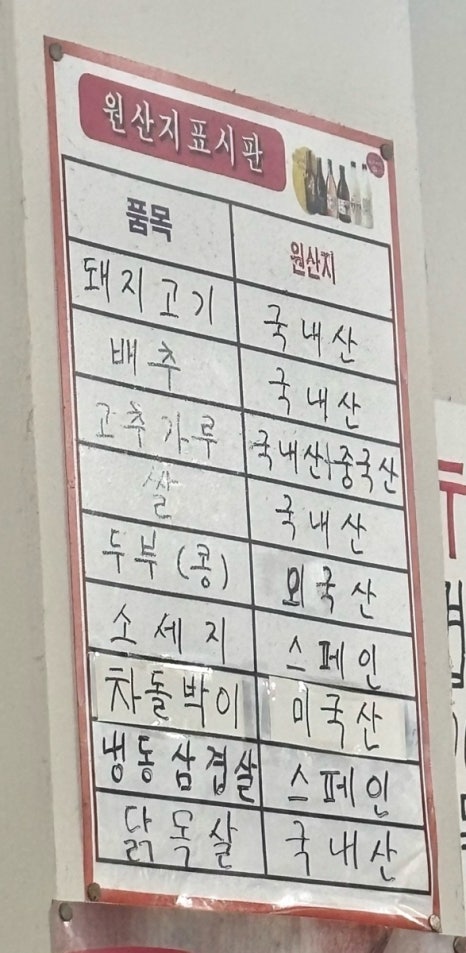 원산지표시판
품목 원산지
돼지고기 국내산
배추 국내산
고추가루 국내산+중국산
쌀 국내산
두부(콩) 외국산
소세지 스페인
차돌박이 미국산
냉동삼겹살 스페인
닭목살 국내산